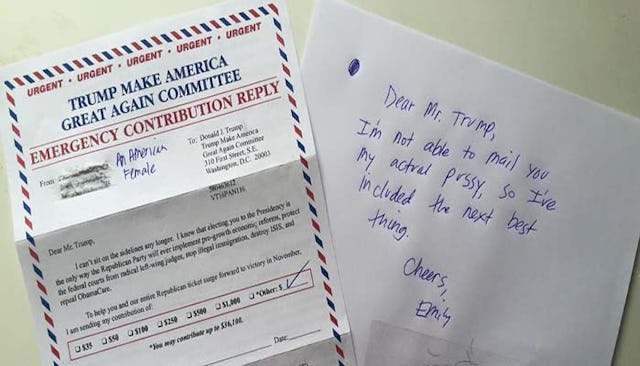 URGENT • URGENT • URGENT • URGENT • URGENT
TRUMP MAKE AMERICA
GREAT AGAIN COMMITTEE
EMERGENCY CONTRIBUTION REPLY
From:
An American
Female
To: Donald J. Trump
Trump Make America
Great Again Committee
310 First Street, S.E.
Washington, D.C. 20003
Dear Mr. Trump,
I can't sit on the sidelines any longer. I know that electing you to the Presidency is
the only way the Republican Party will ever implement pro-growth economic reforms, protect
the federal courts from radical left-wing judges, stop illegal immigration, destroy ISIS, and
repeal ObamaCare.
To help you and our entire Republican ticket surge forward to victory in November,
I am sending my contribution of:
❑ $35 ❑ $50 ❑ $100 ❑ $250 ❑ $500 ❑ $1,000 ❑ *Other: $ ✓
*You may contribute up to $36,100.
Date:
Dear Mr. Trump,
I'm not able to mail you
my actual pussy, so I've
included the next best
thing.
Cheers,
Emily